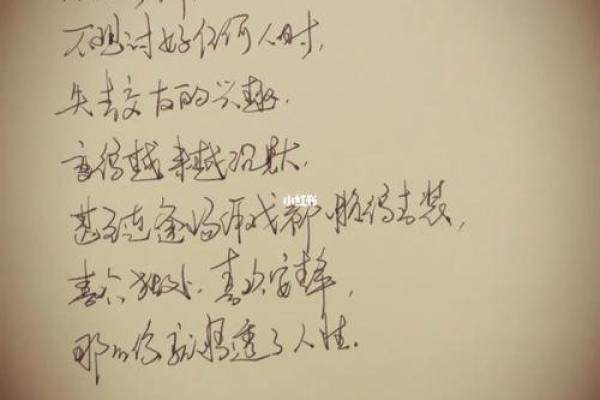 不想讨好任何人时,
失去交友的兴趣.
变得越来越沉默.
小红书
甚至连逢场作戏都懒得去装,
喜欢独处.喜欢安静,
那么你就看透了人性.